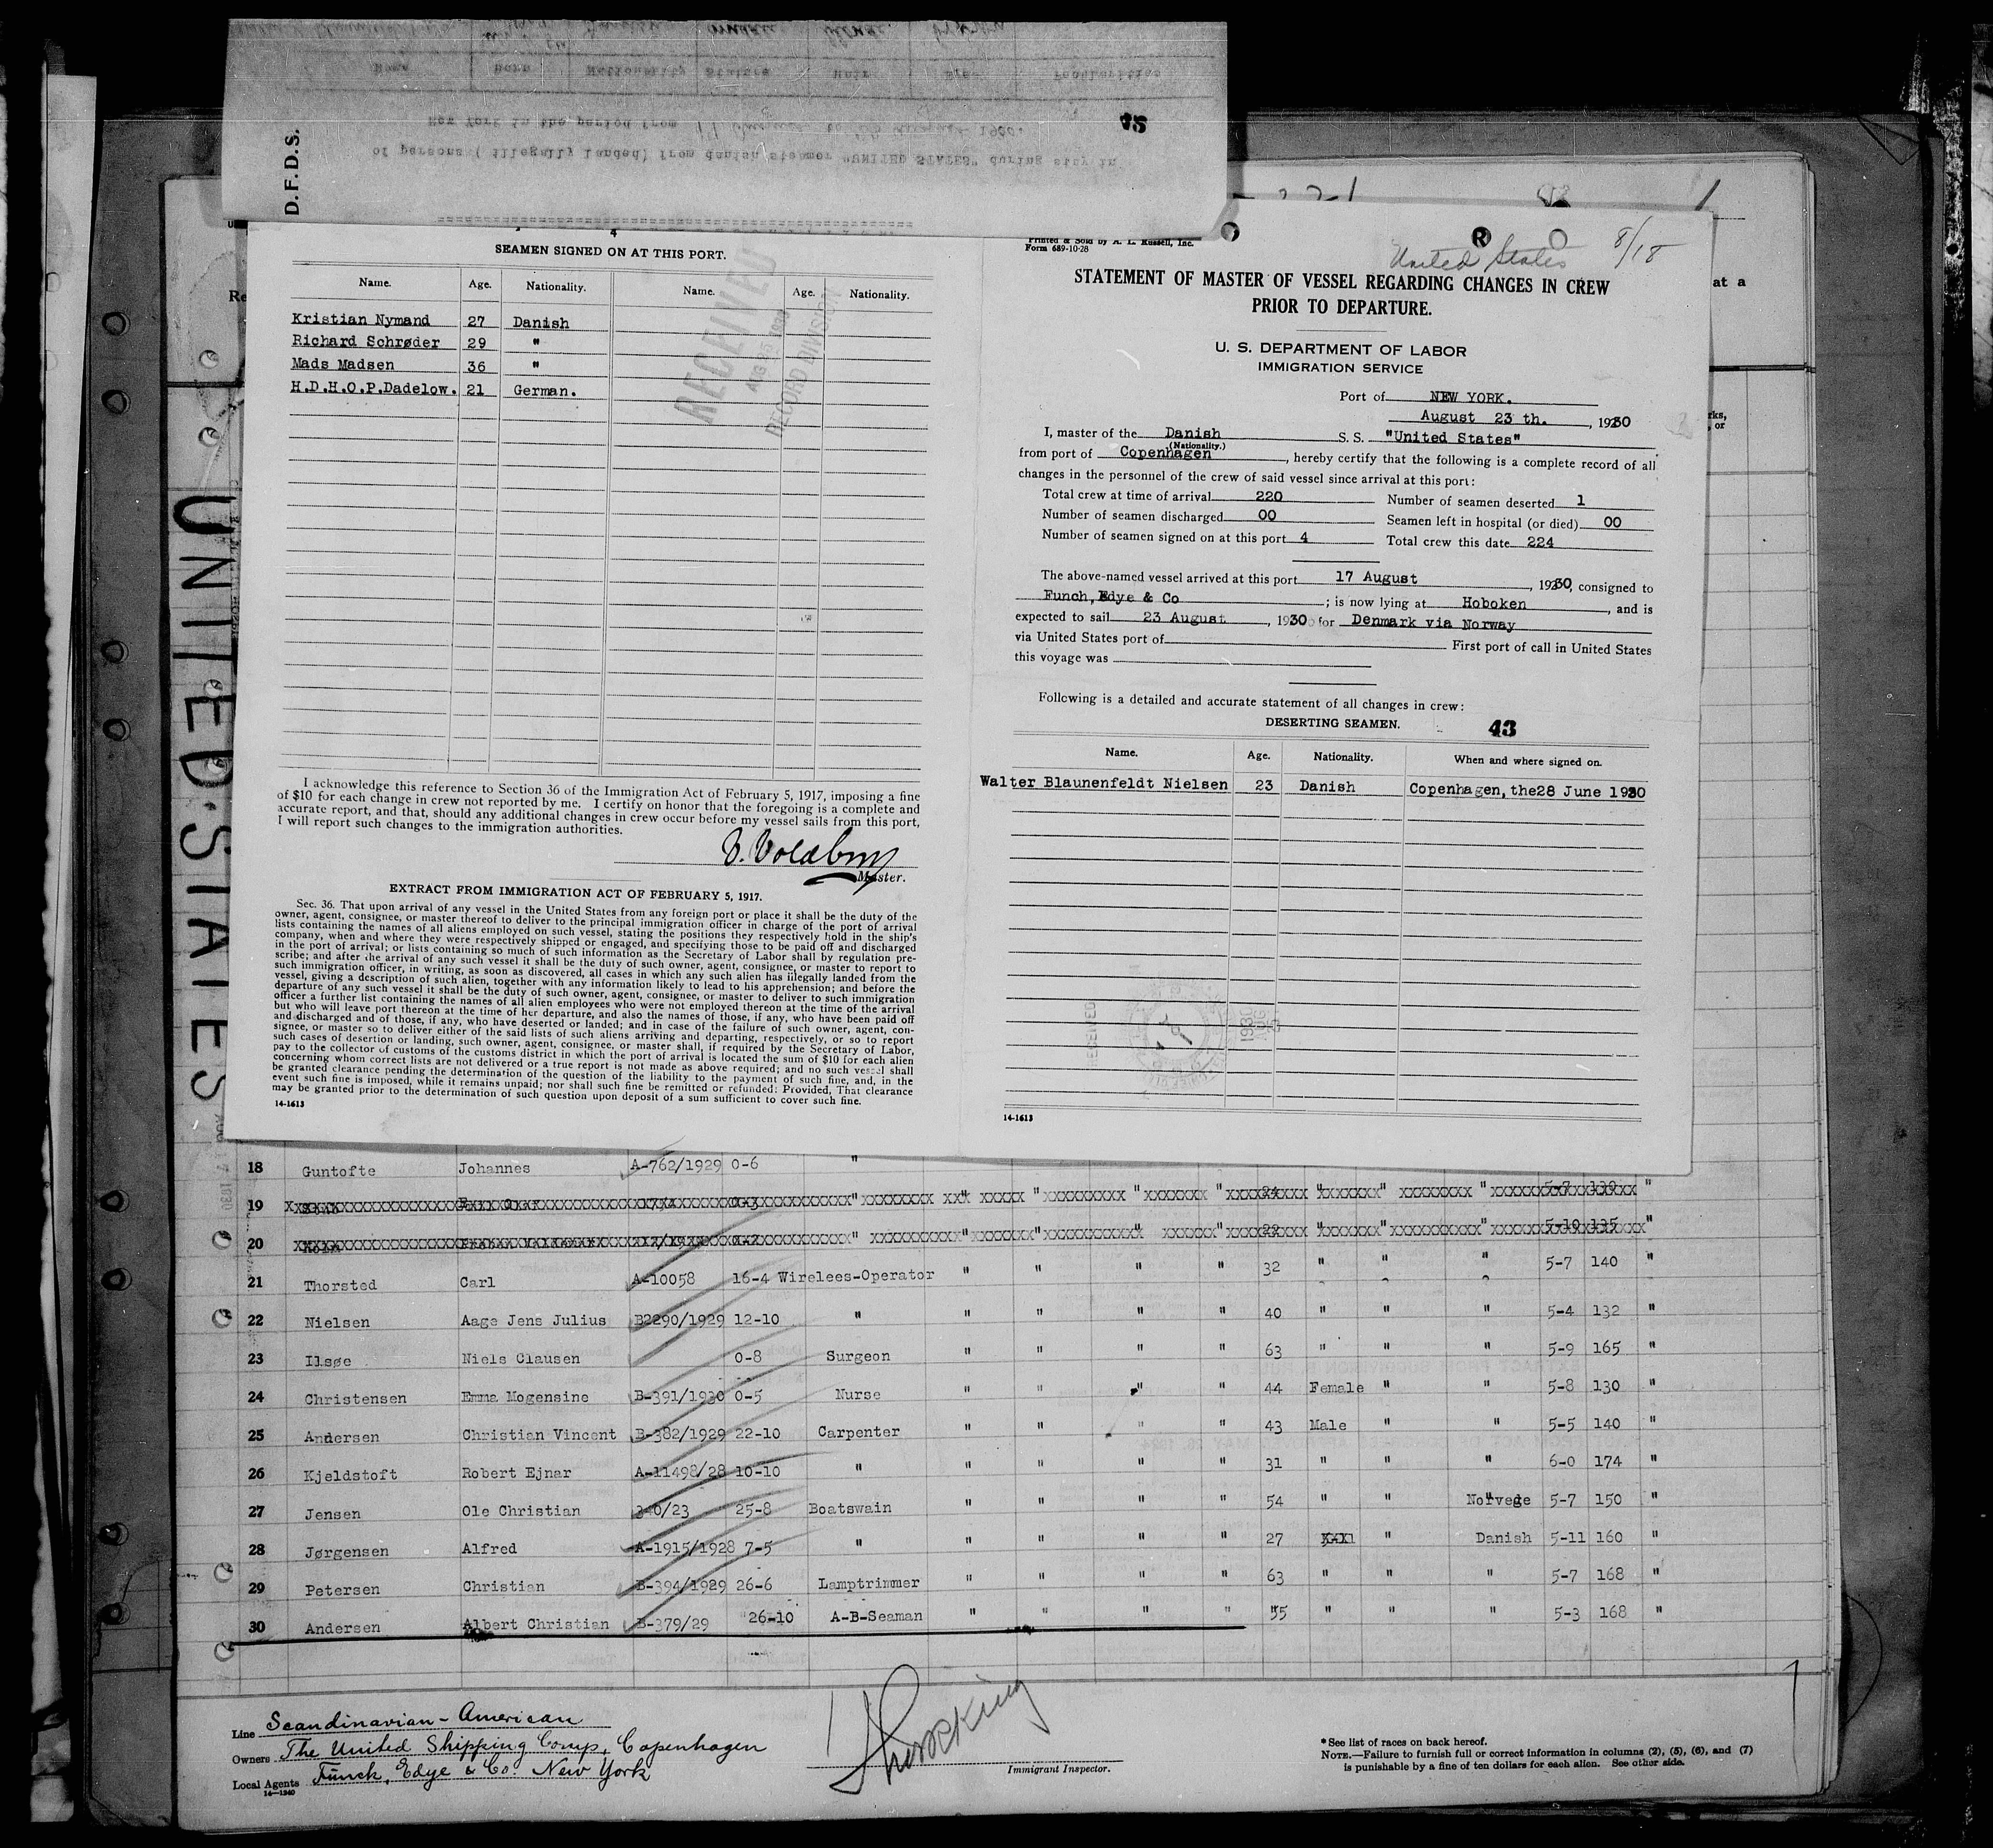 Name Born Nationality Stature Hair Eyes Peculiarities
New York in the period from 17 August to
of persons ( illegally landed) from danish steamer "UNITED STATES" during stay in
42
D.F.D.S.
4
SEAMEN SIGNED ON AT THIS PORT.
Name. Age. Nationality. Name. Age. Nationality.
Kristian Nymand 27 Danish
Richard Schrøder 29 "
Mads Madsen 36 "
H.D.H.O.P.Dadelow. 21 German.
RECEIVED
RECORD DIVISION
I acknowledge this reference to Section 36 of the Immigration Act of February 5, 1917, imposing a fine
of $10 for each change in crew not reported by me. I certify on honor that the foregoing is a complete and
accurate report, and that, should any additional changes in crew occur before my vessel sails from this port,
I will report such changes to the immigration authorities.
Master.
EXTRACT FROM IMMIGRATION ACT OF FEBRUARY 5, 1917.
Sec. 36. That upon arrival of any vessel in the United States from any foreign port or place it shall be the duty of the
owner, agent, consignee, or master thereof to deliver to the principal immigration officer in charge of the port of arrival
lists containing the names of all aliens employed on such vessel, stating the positions they respectively hold in the ship's
company, when and where they were respectively shipped or engaged, and specifying those to be paid off and discharged
in the port of arrival; or lists containing so much of such information as the Secretary of Labor shall by regulation pre-
scribe; and after the arrival of any such vessel it shall be the duty of such owner, agent, consignee, or master to report to
such immigration officer, in writing, as soon as discovered, all cases in which any such alien has illegally landed from the
vessel, giving a description of such alien, together with any information likely to lead to his apprehension; and before the
departure of any such vessel it shall be the duty of such owner, agent, consignee, or master to deliver to such immigration
officer a further list containing the names of all alien employees who were not employed thereon at the time of the arrival
but who will leave port thereon at the time of her departure, and also the names of those, if any, who have been paid off
and discharged and of those, if any, who have deserted or landed; and in case of the failure of such owner, agent, con-
signee, or master so to deliver either of the said lists of such aliens arriving and departing, respectively, or so to report
such cases of desertion or landing, such owner, agent, consignee, or master shall, if required by the Secretary of Labor,
pay to the collector of customs of the customs district in which the port of arrival is located the sum of $10 for each alien
concerning whom correct lists are not delivered or a true report is not made as above required; and no such vessel shall
be granted clearance pending the determination of the question of the liability to the payment of such fine, and, in the
event such fine is imposed, while it remains unpaid; nor shall such fine be remitted or refunded: Provided, That clearance
may be granted prior to the determination of such question upon deposit of a sum sufficient to cover such fine.
14-1613
Printed & Sold by A. L. Russell, Inc.
Form 689-10-28
R
United States 8/18
STATEMENT OF MASTER OF VESSEL REGARDING CHANGES IN CREW
PRIOR TO DEPARTURE.
U. S. DEPARTMENT OF LABOR
IMMIGRATION SERVICE
Port of NEW YORK.
August 23 th. , 1930
I, master of the Danish S. S. "United States"
(Nationality.)
from port of Copenhagen , hereby certify that the following is a complete record of all
changes in the personnel of the crew of said vessel since arrival at this port:
Total crew at time of arrival 220 Number of seamen deserted 1
Number of seamen discharged 00 Seamen left in hospital (or died) 00
Number of seamen signed on at this port 4 Total crew this date 224
The above-named vessel arrived at this port 17 August , 1930, consigned to
Funch, Edye & Co ; is now lying at Hoboken , and is
expected to sail 23 August , 1930 for Denmark via Norway
via United States port of First port of call in United States
this voyage was
Following is a detailed and accurate statement of all changes in crew:
DESERTING SEAMEN. 43
Name. Age. Nationality. When and where signed on.
Walter Blaunenfeldt Nielsen 23 Danish Copenhagen, the28 June 1930
RECEIVED
1930
14-1613
at a
UNITED STATES
18 Guntofte Johannes A-762/1929 0-6 "
19 0-3 24 5-7 139
20 0-2 22 5-10 135 "
21 Thorsted Carl A-10058 16-4 Wirelees-Operator " " " " 32 " " " 5-7 140 "
22 Nielsen Aage Jens Julius B2290/1929 12-10 " " " " " 40 " " " 5-4 132 "
23 Ilsøe Niels Clausen 0-8 Surgeon " " " " 63 " " " 5-9 165 "
24 Christensen Emma Mogensine B-391/1930 0-5 Nurse " " " " 44 Female " " 5-8 130 "
25 Andersen Christian Vincent B-382/1929 22-10 Carpenter " " " " 43 Male " " 5-5 140 "
26 Kjeldstoft Robert Ejnar A-11498/28 10-10 " " " " " 31 " " " 6-0 174 "
27 Jensen Ole Christian 340/23 25-8 Boatswain " " " " 54 " " Norvege 5-7 150 "
28 Jørgensen Alfred A-1915/1928 7-5 " " " " " 27 " Danish 5-11 160 "
29 Petersen Christian B-394/1929 26-6 Lamptrimmer " " " " 63 " " " 5-7 168 "
30 Andersen Albert Christian B-379/29 26-10 A-B-Seaman " " " " 55 " " " 5-3 168 "
Line Scandinavian-American
Owners The United Shipping Comp, Copenhagen
Local Agents Funch, Edye & Co. New York
14-1240
Immigrant Inspector.
* See list of races on back hereof.
NOTE.—Failure to furnish full or correct information in columns (2), (5), (6), and (7)
is punishable by a fine of ten dollars for each alien. See other side.